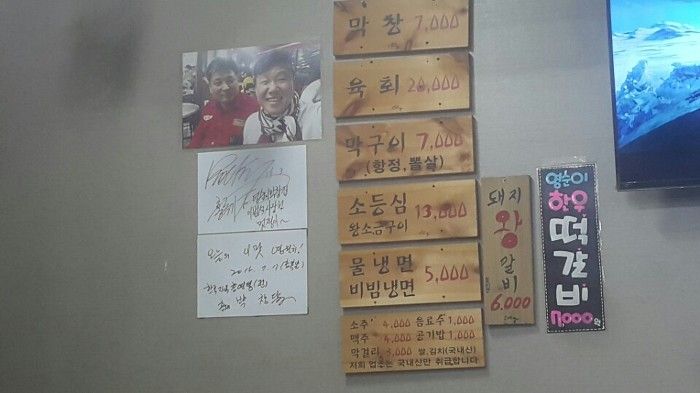 막창 7,000
육회 20,000
막구이 7,000
(항정,뽈살)
소등심 13,000
왕소금구이
물냉면
비빔냉면 5,000
소주 4,000 음료수 1,000
맥주 4,000 공기밥 1,000
막걸리 3,000 쌀,김치(국내산)
저희 업소는 국내산만 취급합니다
돼지
왕
갈비
6.000
영순이
한우
떡갈비
7,000원
오늘의